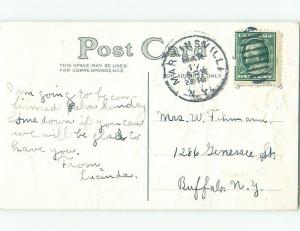 Post Card
THIS SPACE MAY BE USED
FOR CORRESPONDENCE
MARTINSVILLE
MAR
17
N.Y.
I am going to be con-
firmed Palm Sunday
come down if you can
we will be glad to
have you.
From,
Lucinda.
Mrs. W. Fihmann.
1286 Genessee St.
Buffalo. N.Y.